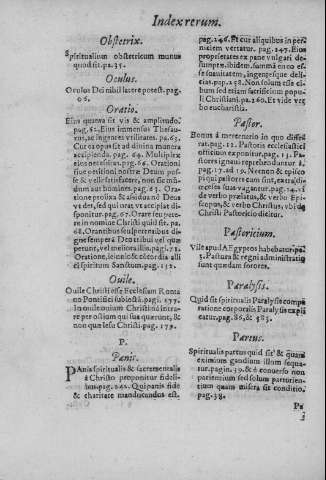 Index rerum.
Obstetrix.
Spiritualium obstetricum munus
quod sit. pa. 35.
Oculus.
Oculus Dei nihil latere potest. pag.
Oratio.
Eius quanta sit vis & amplitudo.
pag. 62. Eius immensus Thesau-
rus, ac ingentes vtilitates. pa. 63.
Cur ea opus sit ad diuina munera
accipienda. pag. 64. Multiplex
eius necessitas. pag. 66. Orationi
siue petitioni nostræ Deum posse
& velle satisfacere, non sic mun-
di deum aut homines. pag. 63. Ora-
tione prolixa & assidua nō Deus
vt det, sed qui orat vt accipiat di-
sponitur. pag. 67. Orare seu pete-
re in nomine Christi quid sit. pa.
68. Orantibus seu petentibus di-
gnè semper à Deo tribui vel quę
petunt, vel meliora illis. pag. 71.
Oratione, ieiunio & cōcordia alli
ci spiritum Sanctum. pag. 132.
Ouile.
Ouile Christi esse Ecclesiam Roma
no Pontifici subiectā. pagi. 177.
In ouile ouium Christi nō intra-
re per ostium qui illa querunt, &
non quæ Iesu Christi. pag. 179.
P.
Panis.
Panis spiritualis & sacramentalis
à Christo proponitur fideli-
bus. pag. 242. Qui panis fide
& charitate manducandus est.
pag. 246. Et cur aliquibus in per-
niciem vertatur. pag. 247. Eius
proprietates ex pane vulgari de-
sumptæ. ibidem. summā in eo es-
se suauitatem, ingentesque deli-
tias. pag. 258. Non solum esse ci-
bum sed etiam sacrificium popu-
li Christiani. pa. 260. Et vide ver
bo eucharistia.
Pastor.
Bonus à mercenario in quo differat
pag. 11. Pastoris ecclesiastici
officium exponitur. pag. 13. Pa-
stores ignaui reprehenduntur
pag. 17. ad 19. Necnon & episco
pi qui pastores cum sint, extra ali
mersa suas vagantur. pag.
de verbo prælatus, & verbo Epi-
scopus, & verbo Christus, vbi de
Christi Pastoricio dicitur.
Pastoricium.
Vile apud AEgyptos habebatur. pa.
3. Pastura & regni administratio
sunt quædam sorores.
Paralysis.
Quid sit spiritualis Paralysis compa
ratione corporalis Paralysis expli
catur. pag. 86, & 383.
Partus.
Spiritualis partus quid sit? & quam
eximium gaudium illum sequa-
tur. pagin. 39. & è conuerso non
parientium sed solum parturien-
tium quàm misera sit conditio.
pag. 38.
Pa